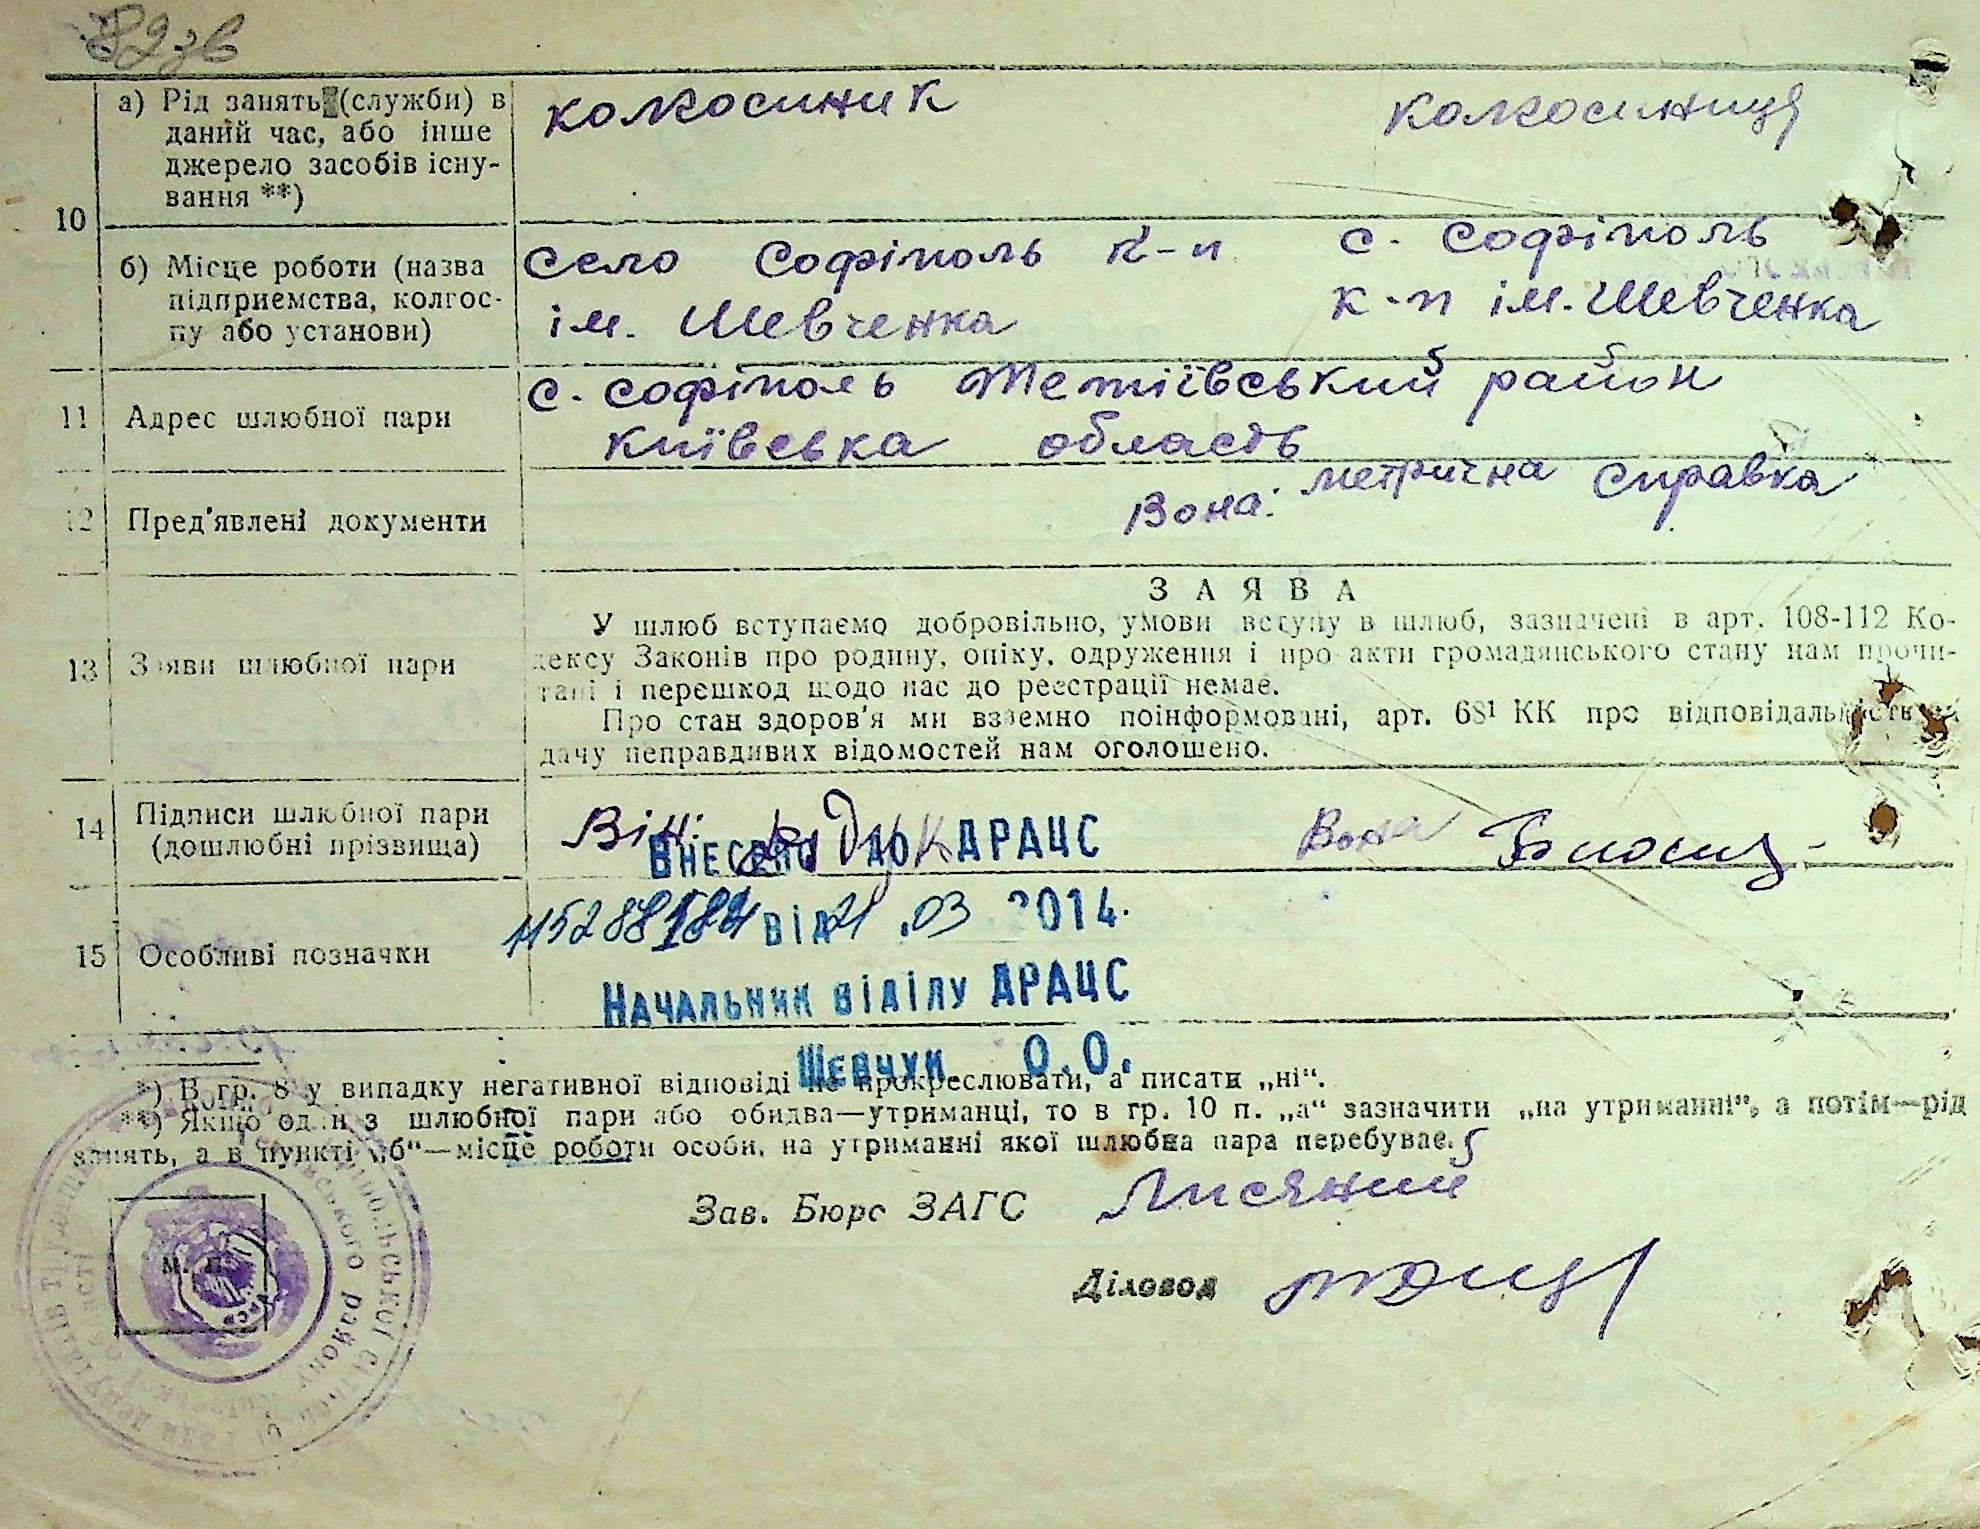 82 зв
10
а) Рід занять (службы) в
даний час, або інше
джерело засобів існу-
вання **)
колхосиник
колхосиниця
б) Місце роботи (назва
підприємства, колгос-
пу або установи)
Село Софіполь к-п
ім. Шевченка
с. Софіполь
к-п ім. Шевченка
11 Адрес шлюбної пари
с. Софіполь Тетіївський район
Київська область
12 Пред'явлені документи
Вона: метрична справка
13 Заяви шлюбної пари
ЗАЯВА
У шлюб вступаємо добровільно, умови вступу в шлюб, зазначені в арт. 108-112 Ко-
дексу Законів про родину, опіку, одруження і про акти громадянського стану нам прочи-
тані і перешкод щодо нас до реєстрації немає.
Про стан здоров'я ми взаємно поінформовані, арт. 68¹ КК про відповідальність
дачу неправдивих відомостей нам оголошено.
14 Підписи шлюбної пари
(дошлюбні прізвища)
Він:
Вона
Внесено до ДРАЦС
від 21.03 2014.
15 Особливі позначки
Начальник віділу ДРАЦС
О.О.
*) В гр. 8 у випадку негативної відповіді не прокреслювати, а писати „ні“.
**) Якщо один з шлюбної пари або обидва—утриманці, то в гр. 10 п. „а“ зазначити „на утриманні“, а потім—рід
занять, а в пункті „б“—місце роботи особи, на утриманні якої шлюбна пара перебуває.
м. п.
Зав. Бюро ЗАГС Лисяний
Діловод